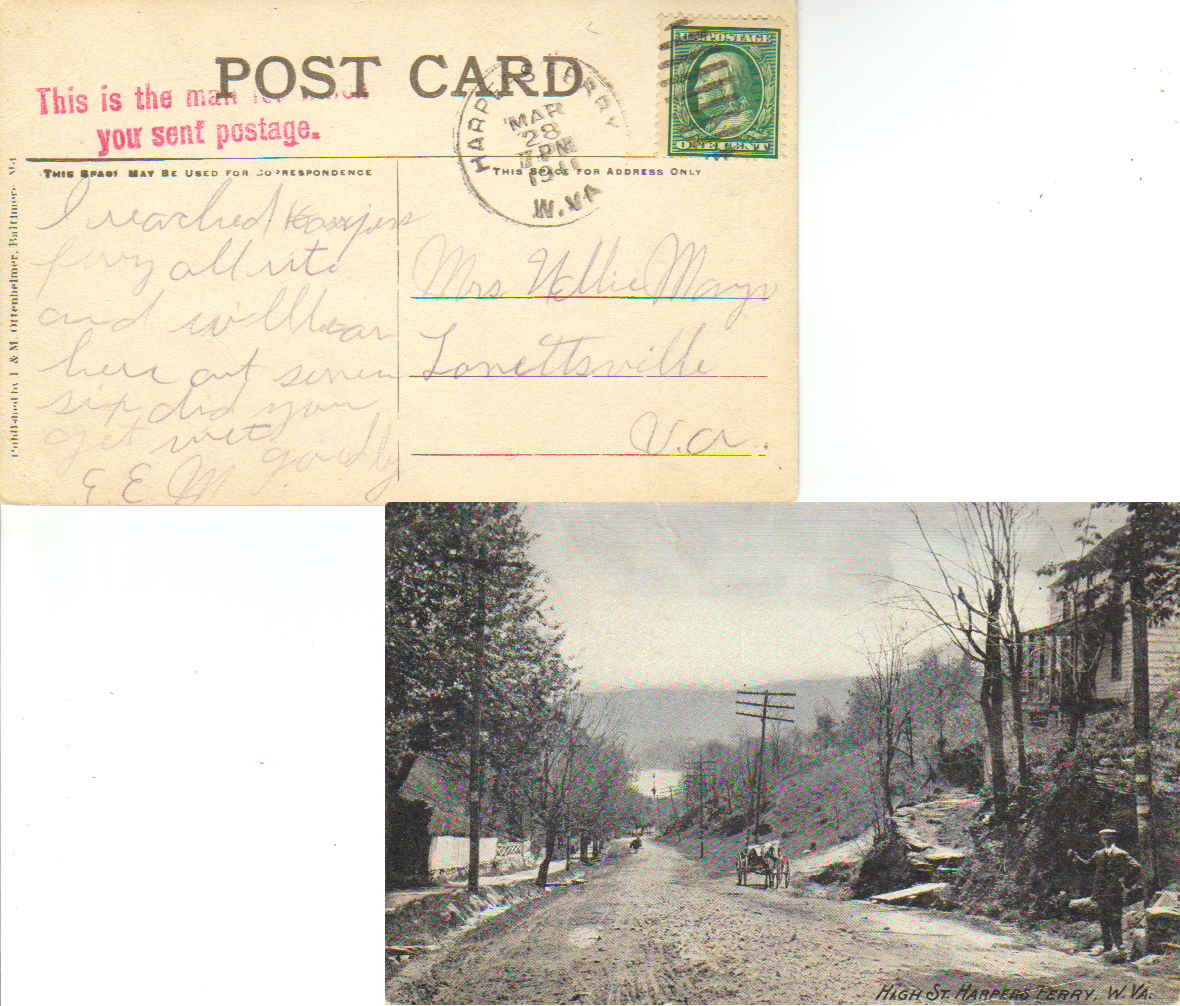 POST CARD
This is the mail for which
you sent postage.
HARPERS FERRY
MAR
28
7 PM
1911
W.VA
U.S. POSTAGE
ONE CENT
THIS SPACE MAY BE USED FOR CORRESPONDENCE
THIS SPACE FOR ADDRESS ONLY
Published by I. & M. Ottenheimer, Baltimore, Md.
I reached Harpers
ferry all rite
and will
here at seven
six did you
get wet goodby
E E M
Mrs Nellie
Lovettsville
Va.
HIGH ST. HARPERS FERRY, W. VA.